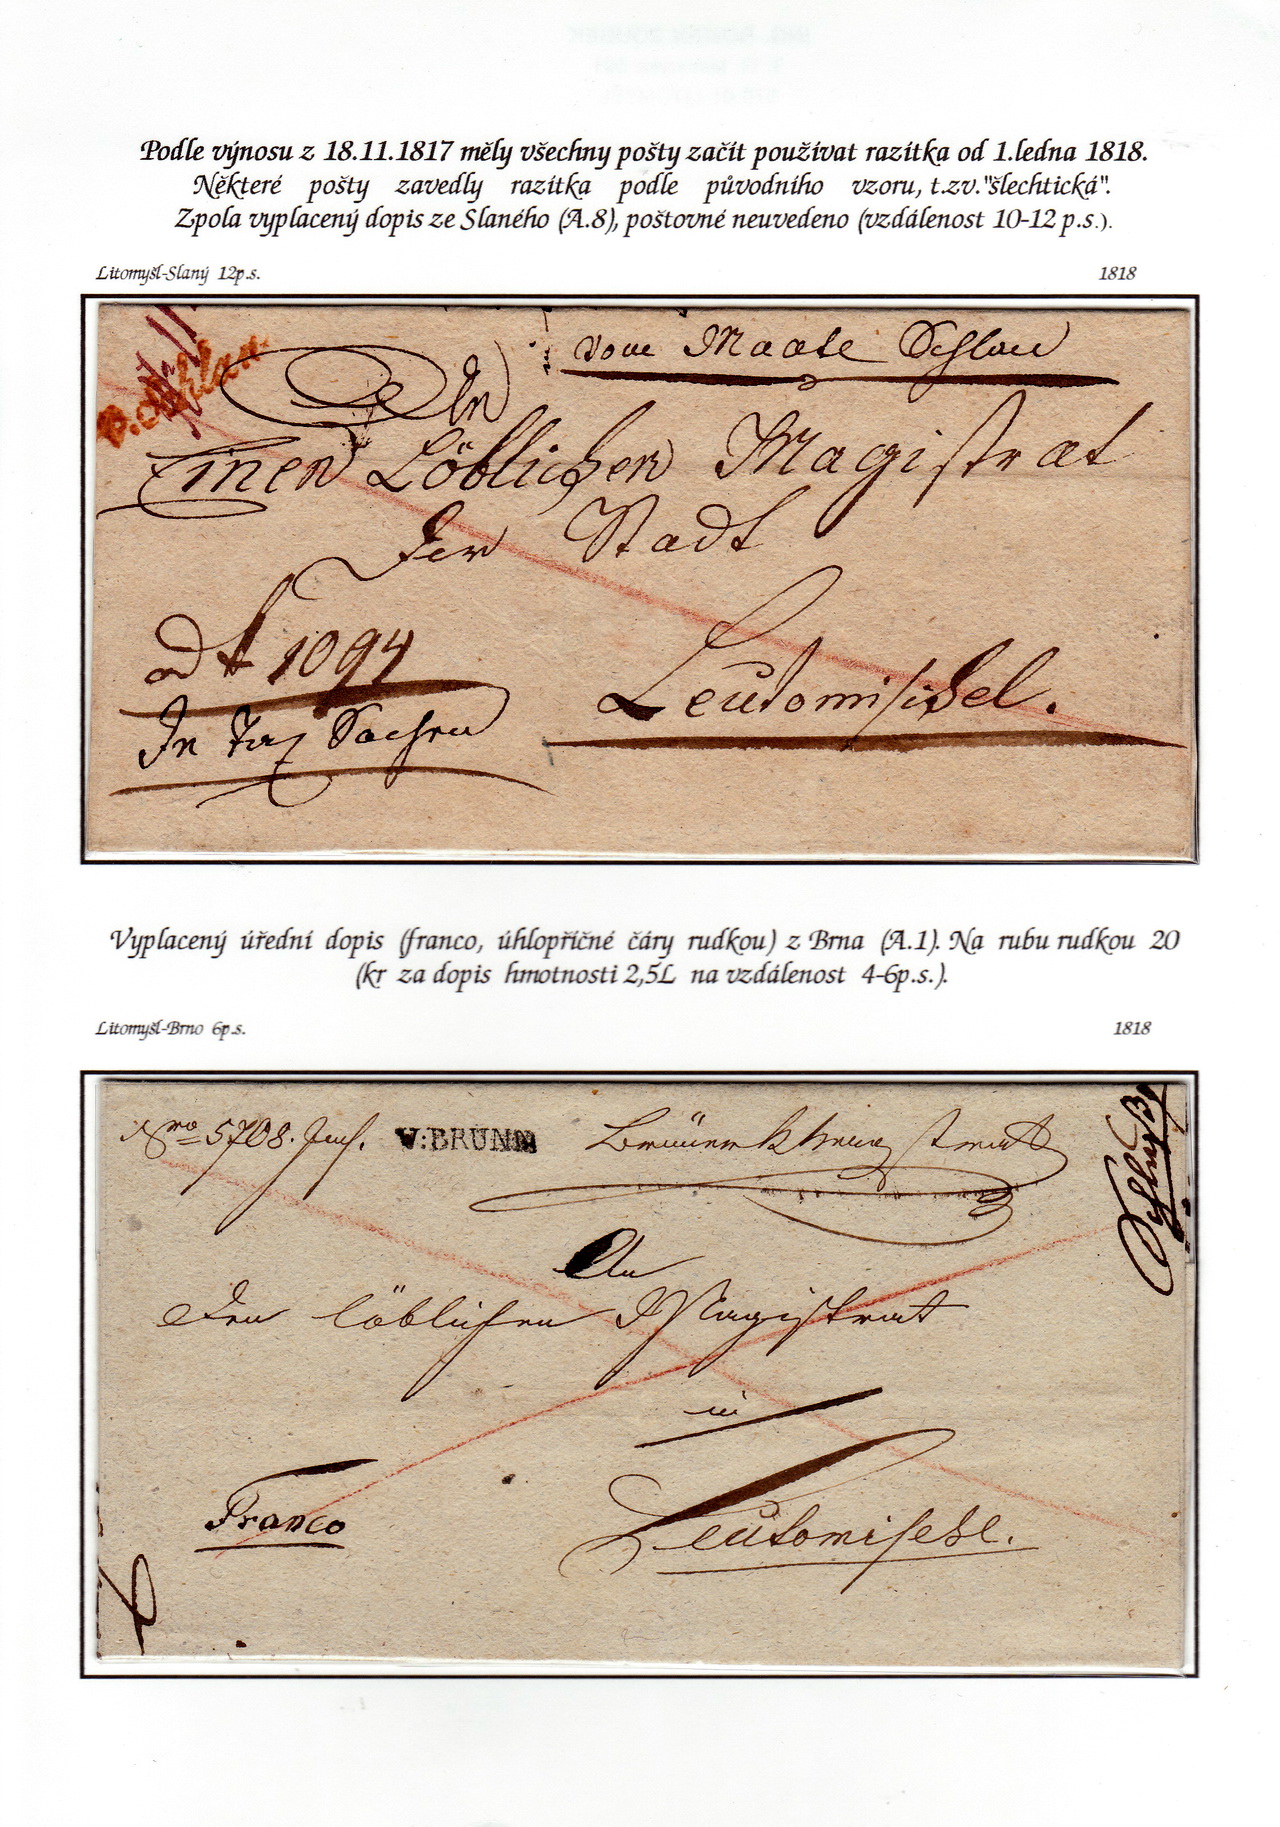 Podle výnosu z 18.11.1817 měly všechny pošty začít používat razítka od 1.ledna 1818.
Některé pošty zavedly razítka podle původního vzoru, t.zv."šlechtická".
Zpola vyplacený dopis ze Slaného (A.8), poštovné neuvedeno (vzdálenost 10-12 p.s.).
Litomyšl-Slaný 12p.s.
1818
v. Schlan.
vom Schlan
An
Einen Löblichen Magistrat
Der Stadt
1094
Leutomischel.
In
Vyplacený úřední dopis (franco, úhlopříčné čáry rudkou) z Brna (A.1). Na rubu rudkou 20
(kr za dopis hmotnosti 2,5L na vzdálenost 4-6p.s.).
Litomyšl-Brno 6p.s.
1818
Nro 5708. V:BRÜNN
An
den löblichen Magistrat
in
Franco
Leutomischl.